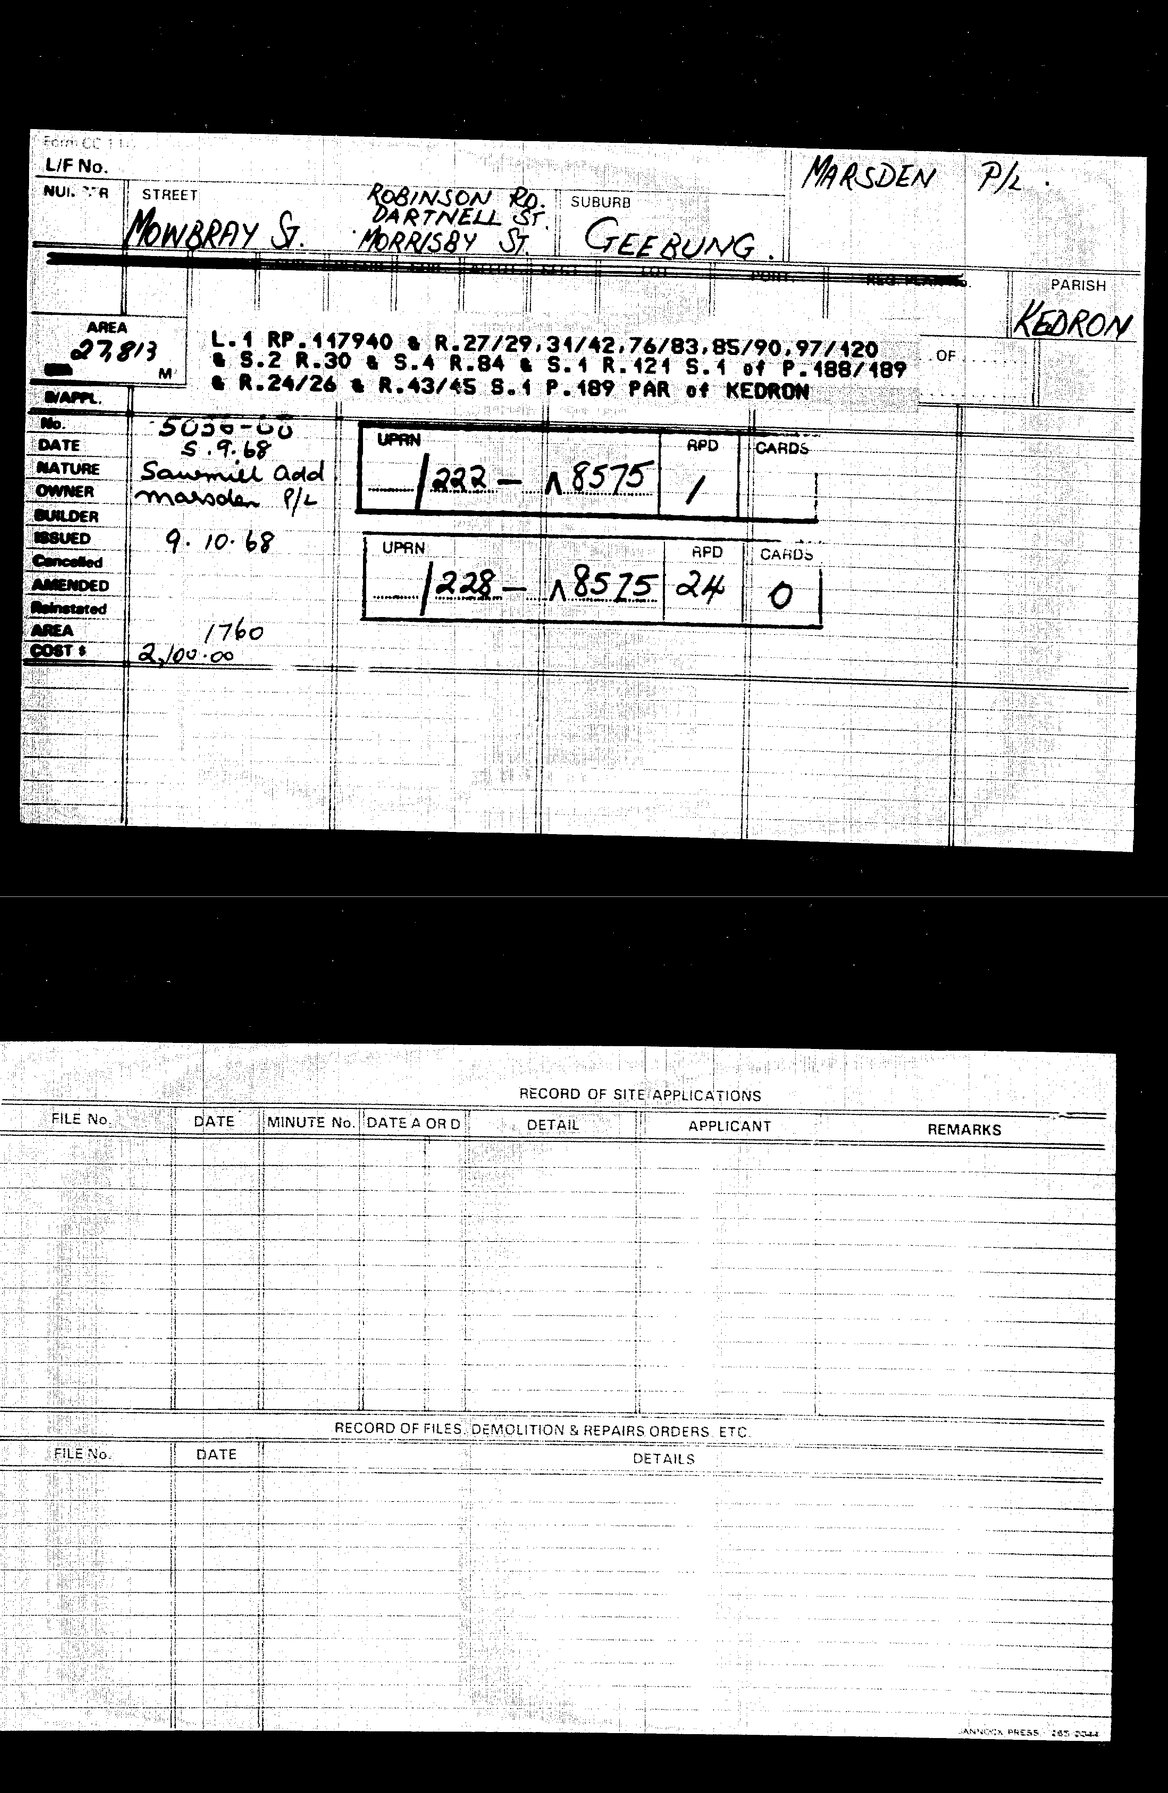 Form CC 1
L/F No.
MARSDEN P/L.
STREET
ROBINSON RD.
SUBURB
DARTNELL ST.
MOWBRAY St.
MORRISBY ST.
GEEBUNG.
PARISH
KEDRON
AREA
27,813
M
L.1 RP.117940 & R.27/29,31/42,76/83,85/90,97/120
& S.2 R.30 & S.4 R.84 & S.1 R.121 S.1 of P.188/189
& R.24/26 & R.43/45 S.1 P.189 PAR of KEDRON
OF
B/APPL.
No.
DATE 5.9.68
NATURE Sawmill add
OWNER Marsden P/L
BUILDER
ISSUED 9.10.68
Cancelled
AMENDED
Reinstated
AREA 1760
COST $ 2,100.00
UPRN RPD CARDS
/222 – ∧8575 /
UPRN RPD CARDS
/228 – ∧8575 24 0
RECORD OF SITE APPLICATIONS
FILE No. DATE MINUTE No. DATE A OR D DETAIL APPLICANT REMARKS
RECORD OF FILES, DEMOLITION & REPAIRS ORDERS ETC.
FILE No. DATE DETAILS
PRESS